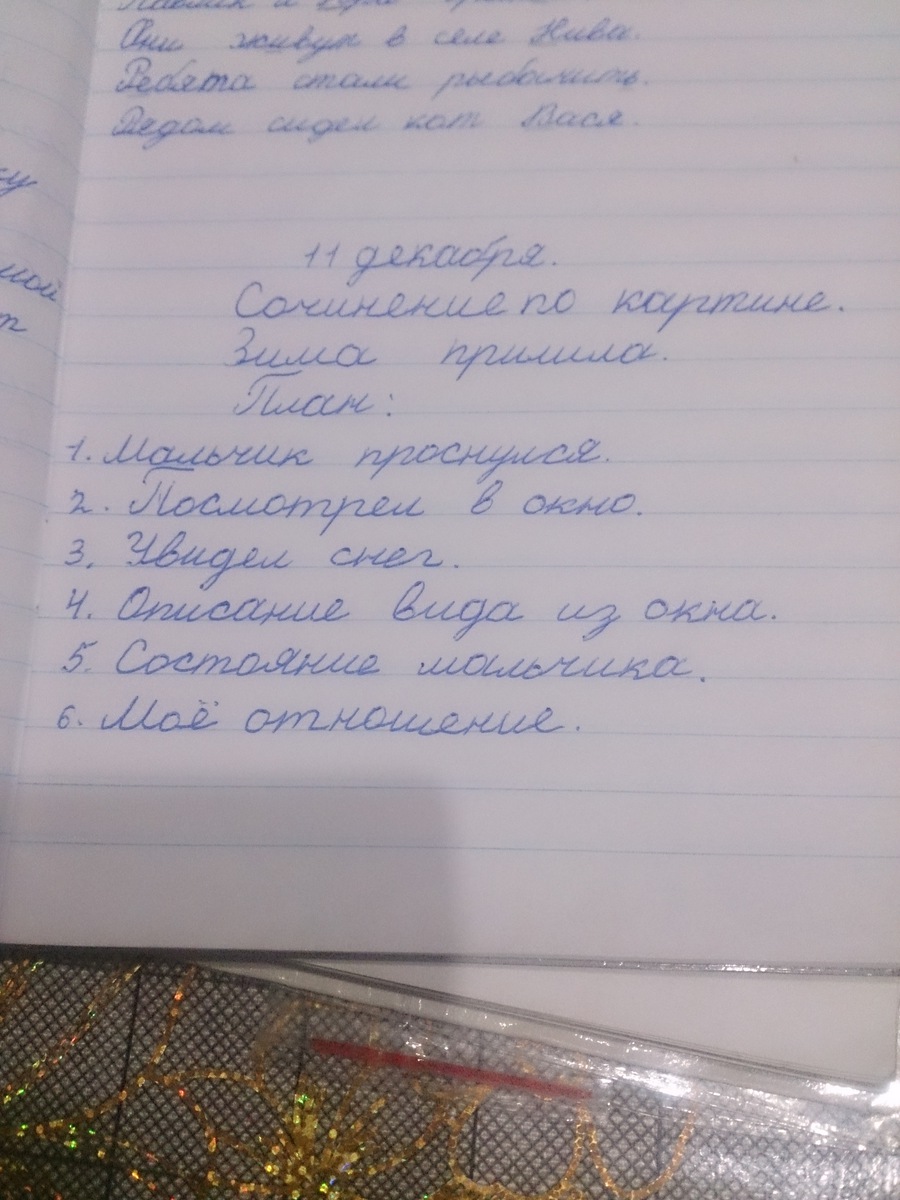 Они живут в селе Нива.
Ребята стали рыбачить.
Рядом сидел кот Вася.
11 декабря.
Сочинение по картине.
Зима пришла.
План:
1. Мальчик проснулся.
2. Посмотрел в окно.
3. Увидел снег.
4. Описание вида из окна.
5. Состояние мальчика.
6. Моё отношение.